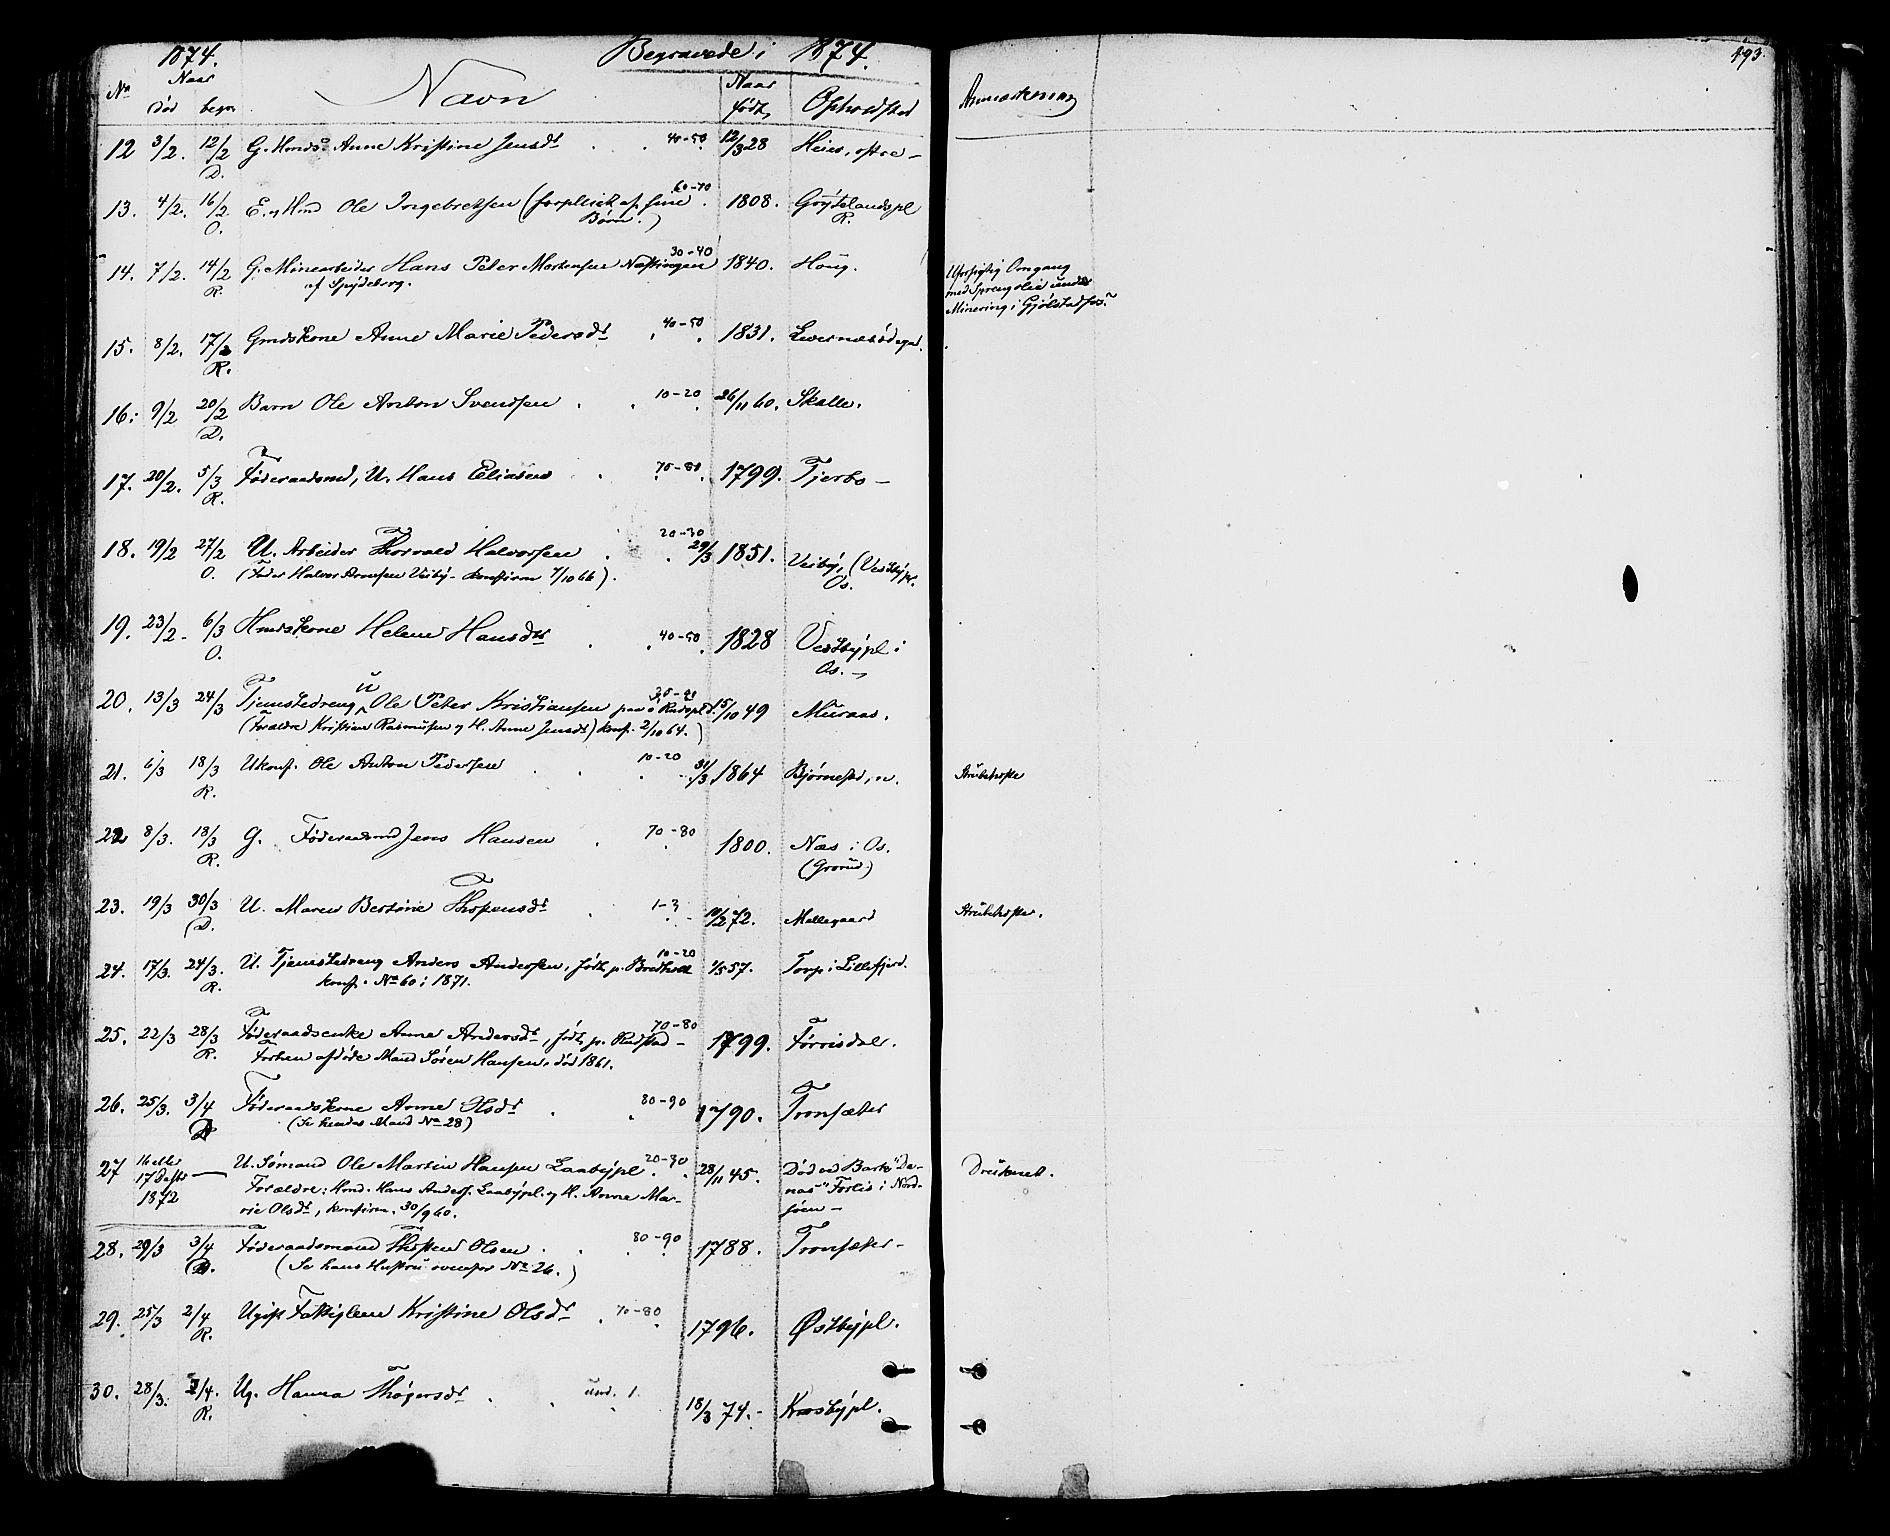 1874. Begravede i 1874. 493.
No Naar Død begr. Navn Naar født Opholdsted Anmærkning
12 3/2. 12/2 D. G. Hmds. Anne Kristine Jensdr 40-50 12/3 28 Heier, østre
13. 4/2. 16/2 O. E. og Hmd Ole Ingebretsen (forpleiet af sine 60-70 1808. Grýtelandspl R.
Børn.)
14. 7/2. 14/2 R. G. Minearbeider Hans Peter Martensen Næstingen 30-40 1840. Houg. Uforsigtig Omgang
af Spydeberg. med Sprengolie under
Minering i Gjølstadfos.
15. 8/2. 17/2 R. Gmdskone Anne Marie Pedersdr 40-50 1831. Levernæsødegd.
16. 9/2 20/2 D. Barn Ole Anton Svendsen 10-20 26/11 60. Skalle.
17. 20/2. 5/3 R. Føderaadsmd, U. Hans Eliasen 70-80 1799. Tjerbo
18. 19/2 27/2 O. U. Arbeider Thorvald Halvorsen 20-30 29/3 1851. Veibý, (Vestbýpl.
(Fader Halvor Arnesen Veibý - konfirm 7/10 66). Os.
19. 23/2 6/3 O. Hmdskone Helene Hansdr 40-50 1828 Vestbýpl i
Os.
20. 13/3 24/3 Tjenestedreng U Ole Peter Kristiansen paa Rudspl. 15/10 49 Muraas.
(Forældre Kristian Rasmusen og H. Anne Jensdr) konf. 2/10 64.)
21. 6/3 18/3 R. Ukonf. Ole Anton Pedersen 10-20 31/3 1864 Bjørnestad, n. Strubehoste
22 8/3. 18/3 R. G. Føderaadsmd Jens Hansen 70-80 1800. Næs i Os.
(Grorud)
23. 19/3 30/3 D. U. Maren Bertine Thostensdr 1-3 10/2 72. Mellegaard Strubehoste.
24. 17/3. 24/3. R. U. Tjenestedreng Anders Andersen, født p. Bredholt 10-20 1/5 57. Torp i Lillefjerd.
konf. No 60 i 1871.
25. 22/3 28/3 R. Føderaadsenke Anne Andersdr, født p. Rudstad 70-80 1799. Førrisdalr.
Forhen afdøde Mand Søren Hansen, død 1861.
26. 25/3. 3/4 D Føderaadskone Anne Olsdr 80-90 1790. Tronsæter
(Se hendes Mand No 28)
27 16 eller 17 1872 U. Sømand Ole Martin Hansen Laabýpl 20-30 28/11 45. Død ved Bark "Da- Druknet.
Forældre: Hmd. Hans Anders. Laabýpl. og H. Anne Ma- nas" Forlis i Nord-
rie Olsdr, konfirm. 30/9 60. søen
28. 29/3 3/4 D. Føderaadsmand Thosten Olsen 80-90 1788. Tronsæter
(Se hans Hustru ovenfor No 26.)
29. 25/3 2/4 R. Ugift Fattiglem Kristine Olsdr 70-80 1796. Østbýpl.
30. 28/3. 2/4. R. Ug. Hanna Thøgersdr und. 1. 18/3 74. Kræsbýpl.